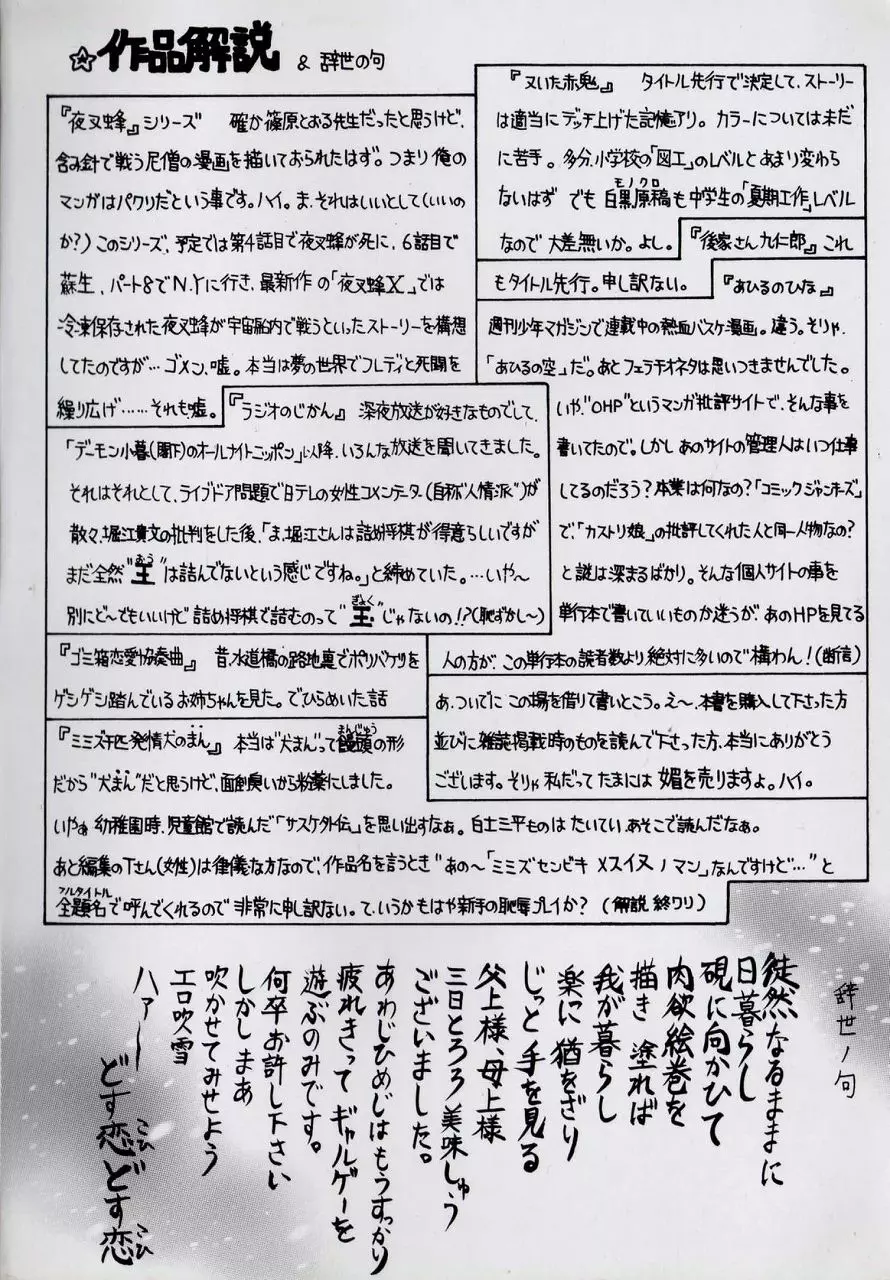 ☆作品解説 & 辞世の句
『夜叉蜂』シリーズ　確か篠原とおる先生だったと思うけど、
含み針で戦う尼僧の漫画を描いておられたはず。つまり俺の
マンガはパクリだという事です。ハイ。ま、それはいいとして(いいの
か?)このシリーズ、予定では第4話目で夜叉蜂が死に、6話目で
蘇生、パート8でN.Yに行き、最新作の「夜叉蜂X」では
冷凍保存された夜叉蜂が宇宙船内で戦うといったストーリーを構想
してたのですが…ゴメン、嘘。本当は夢の世界でフレディと死闘を
繰り広げ……それも嘘。
『ラジオのじかん』　深夜放送が好きなものでして、
「デーモン小暮(閣下)のオールナイトニッポン」以降、いろんな放送を聞いてきました。
それはそれとして、ライブドア問題で日テレの女性コメンテーター(自称“人情派”)が
散々、堀江貴文の批判をした後、「ま、堀江さんは詰め将棋が得意らしいですが
まだ全然“王”は詰んでないという感じですね。」と締めていた。…いや〜
おう
別にど〜でもいいけど詰め将棋で詰むのって“玉”じゃないの!?(恥ずかし〜)
ぎょく
『ゴミ箱恋愛協奏曲』　昔、水道橋の路地裏でポリバケツを
ゲシゲシ踏んでいるお姉ちゃんを見た。でひらめいた話
『ミミズ千匹発情犬のまん』　本当は“犬まん”って饅頭の形
まんじゅう
だから“犬まん”だと思うけど、面倒臭いから粉薬にしました。
いやぁ幼稚園時、児童館で読んだ「サスケ外伝」を思い出すなぁ。白土三平ものはたいてい、あそこで読んだなぁ。
あと編集のTさん(女性)は律儀な方なので、作品名を言うとき“あの〜「ミミズセンビキ メスイヌノマン」なんですけど…”と
全題名で呼んでくれるので非常に申し訳ない。て、いうかもはや新手の恥辱プレイか?　(解説終ワリ)
フルタイトル
『又いた赤鬼』　タイトル先行で決定して、ストーリー
は適当にデッチ上げた記憶アリ。カラーについては未だ
に苦手。多分、小学校の「図工」のレベルとあまり変わら
ないはず　でも白黒原稿も中学生の「夏期工作」レベル
モノクロ
なので大差無いか。よし。
『後家さん九仁郎』これ
もタイトル先行。申し訳ない。
『あひるのひな』
週刊少年マガジンで連載中の熱血バスケ漫画。違う。そりゃ、
「あひるの空」だ。あとフェラチオネタは思いつきませんでした。
いや、“OHP”というマンガ批評サイトで、そんな事を
書いてたので。しかしあのサイトの管理人はいつ仕事
してるのだろう?本業は何なの?「コミックジャンキーズ」
で、「カストリ娘」の批評してくれた人と同一人物なの?
と謎は深まるばかり。そんな個人サイトの事を
単行本で書いていいものか迷うが、あのHPを見てる
人の方が、この単行本の読者数より絶対に多いので構わん!(断信)
あ、ついでにこの場を借りて書いとこう。え〜、本書を購入して下さった方
並びに雑誌掲載時のものを読んで下さった方、本当にありがとう
ございます。そりゃ私だってたまには媚を売りますよ。ハイ。
辞世ノ句
徒然なるままに
日暮らし
硯に向かひて
肉欲絵巻を
描き 塗れば
我が暮らし
楽に猶をざり
じっと手を見る
父上様、母上様
三日とろろ美味しゅう
ございました。
あわじひめじはもうすっかり
疲れきって ギャルゲーを
遊ぶのみです。
何卒お許し下さい
しかしまあ
吹かせてみせよう
エロ吹雪
ハァー
どす恋どす恋
こひ こひ